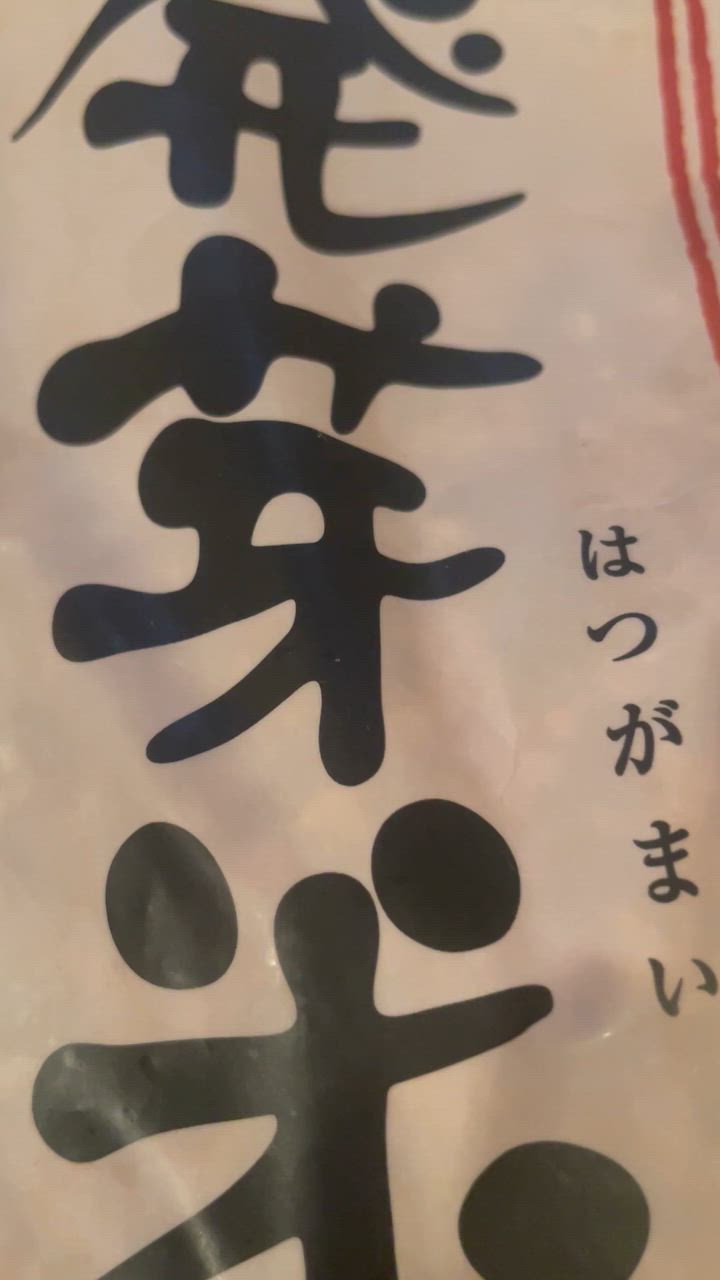 発芽米
はつがまい